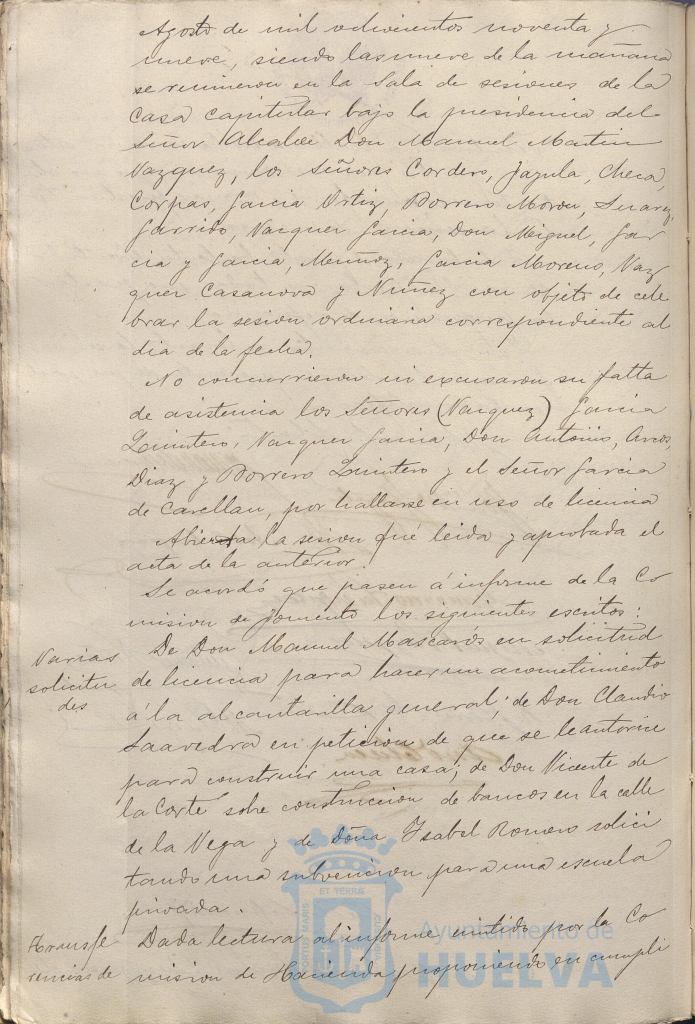 Agosto de mil ochocientos noventa y
nueve, siendo las nueve de la mañana
se reunieron en la Sala de sesiones de la
Casa capitular bajo la presidencia del
Señor Alcalde Don Manuel Martin
Vazquez, los Señores Cordero, Jazula, Checa,
Corpas, Garcia Ortiz, Borrero Moron, Suarez,
Garrido, Vazquez Garcia, Don Miguel, Gar
cia y Garcia, Muñoz, Garcia Moreno, Vaz
quez Casanova y Nuñez con objeto de cele
brar la sesion ordinaria correspondiente al
dia de la fecha.
No concurrieron ni excusaron su falta
de asistencia los Señores (Vazquez) Garcia
Quintero, Vazquez Garcia, Don Antonio, Arcos,
Diaz y Borrero Quintero y el Señor Garcia
de Carellan, por hallarse en uso de licencia
Abierta la sesion fué leida y aprobada el
acta de la anterior.
Se acordó que pasen á informe de la Co
mision de fomento los siguientes escritos:
Varias
solicitu
des
De Don Manuel Mascarós en solicitud
de licencia para hacer un acometimiento
á la alcantarilla general; de Don Claudio
Saavedra en peticion de que se le autorice
para construir una casa; de Don Vicente de
la Corte sobre construccion de bancos en la calle
de la Vega y de doña Ysabel Romero solici
tando una subvencion para una escuela
privada.
Transfe
rencias de
Dada lectura al informe emitido por la Co
mision de Hacienda proponiendo en cumpli
Ayuntamiento de
HUELVA
ET TERRÆ
PORTUS MARIS
CUSTODIA